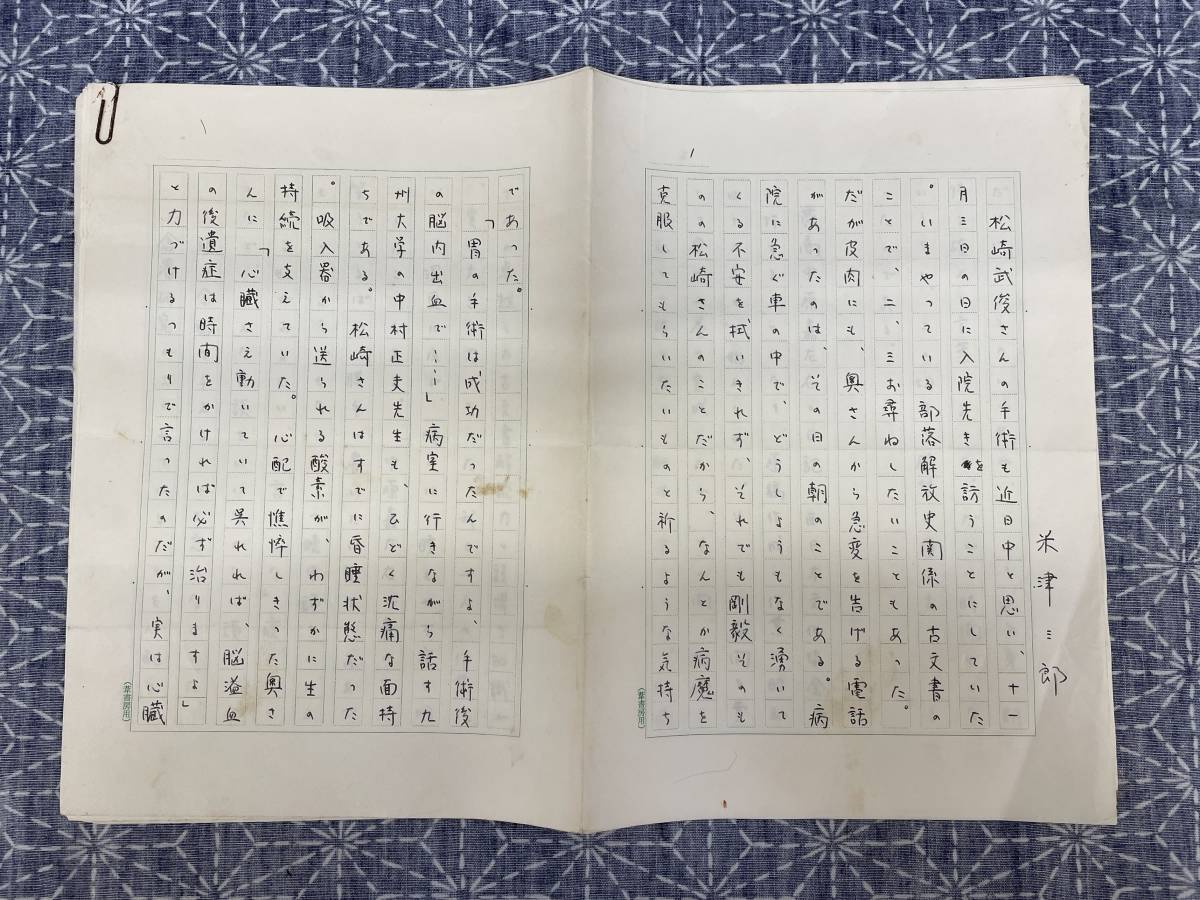 米津三郎
1
松崎武俊さんの手術も近日中と思い、十一
月三日の日に入院先きを訪うことにしていた
。いまやっている部落解放史関係の古文書の
ことで、二、三お尋ねしたいこともあった。
だが皮肉にも、奥さんから急変を告げる電話
があったのは、その日の朝のことである。病
院に急ぐ車の中で、どうしようもなく湧いて
くる不安を拭いきれず、それでも剛毅そのも
のの松崎さんのことだから、なんとか病魔を
克服してもらいたいものと祈るような気持ち
(葦書房用)
であった。
「胃の手術は成功だったんですよ、手術後
の脳内出血で……」病室に行きながら話す九
州大学の中村正夫先生も、ひどく沈痛な面持
ちである。松崎さんはすでに昏睡状態だった
。吸入器から送られる酸素が、わずかに生の
持続を支えていた。心配で憔悴しきった奥さ
んに「心臓さえ動いていて呉れれば、脳溢血
の後遺症は時間をかければ必ず治りますよ」
と力づけるつもりで言ったのだが、実は心臓
(葦書房用)